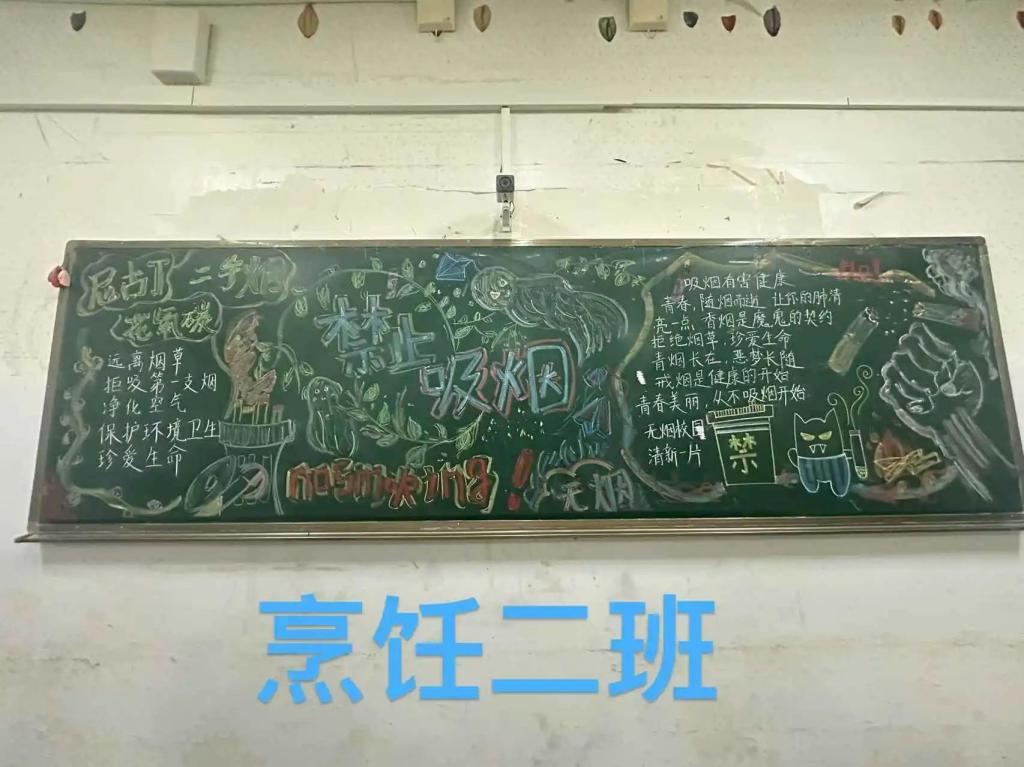 尼古丁 二手烟
花氧碳
远离烟草
拒吸第一支烟
净化空气
保护环境卫生
珍爱生命
禁止
吸烟
nosmoking!
无烟
吸烟有害健康
青春随烟而逝 让你的肺清
亮一点 香烟是魔鬼的契约
拒绝烟草,珍爱生命
青烟长在,恶梦长随
戒烟是健康的开始
青春美丽 从不吸烟开始
无烟校园
清新一片
禁
No!
烹饪二班